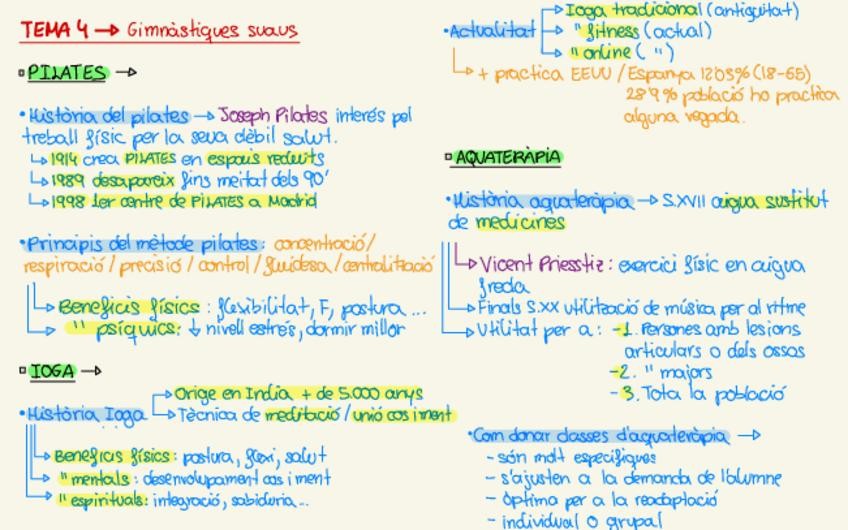 TEMA 4 → Gimnàstiques suaus
PILATES →
• Història del pilates → Joseph Pilates interés pel
treball físic per la seua dèbil salut.
↳ 1914 crea PILATES en espais reduits
↳ 1989 desapareix fins meitat dels 90'
↳ 1998 1er centre de PILATES a Madrid
• Principis del mètode pilates: concentració/
respiració / precisió / control / fluidesa / centralització
↳ Beneficis físics : flexibilitat, F, postura ...
↳ " psíquics: ↓ nivell estrés, dormir millor
IOGA →
• Història Ioga
→ Orige en India + de 5.000 anys
→ Tècnica de meditació / unió cos i ment
Beneficis físics: postura, flexi, salut
" mentals : desenvolupament cos i ment
" espirituals: integració, sabiduria...
• Actualitat
→ Ioga tradicional (antiguitat)
→ " fitness (actual)
→ " online ( " )
↳ + practica EEUU / Espanya 12'03% (18-65)
28'9% població ho practica
alguna vegada.
AQUATERÀPIA
• Història aquateràpia → S.XVII aigua sustitut
de medicines
↳ Vicent Priesstiz : exercici físic en aigua
freda
Finals S.XX utilització de música per al ritme
Utilitat per a : -1. Persones amb lesions
articulars o dels ossos
-2. " majors
-3. Tota la població
• Com donar classes d'aquateràpia →
- són molt especifiques
- s'ajusten a la demanda de l'alumne
- òptima per a la readaptació
- individual o grupal